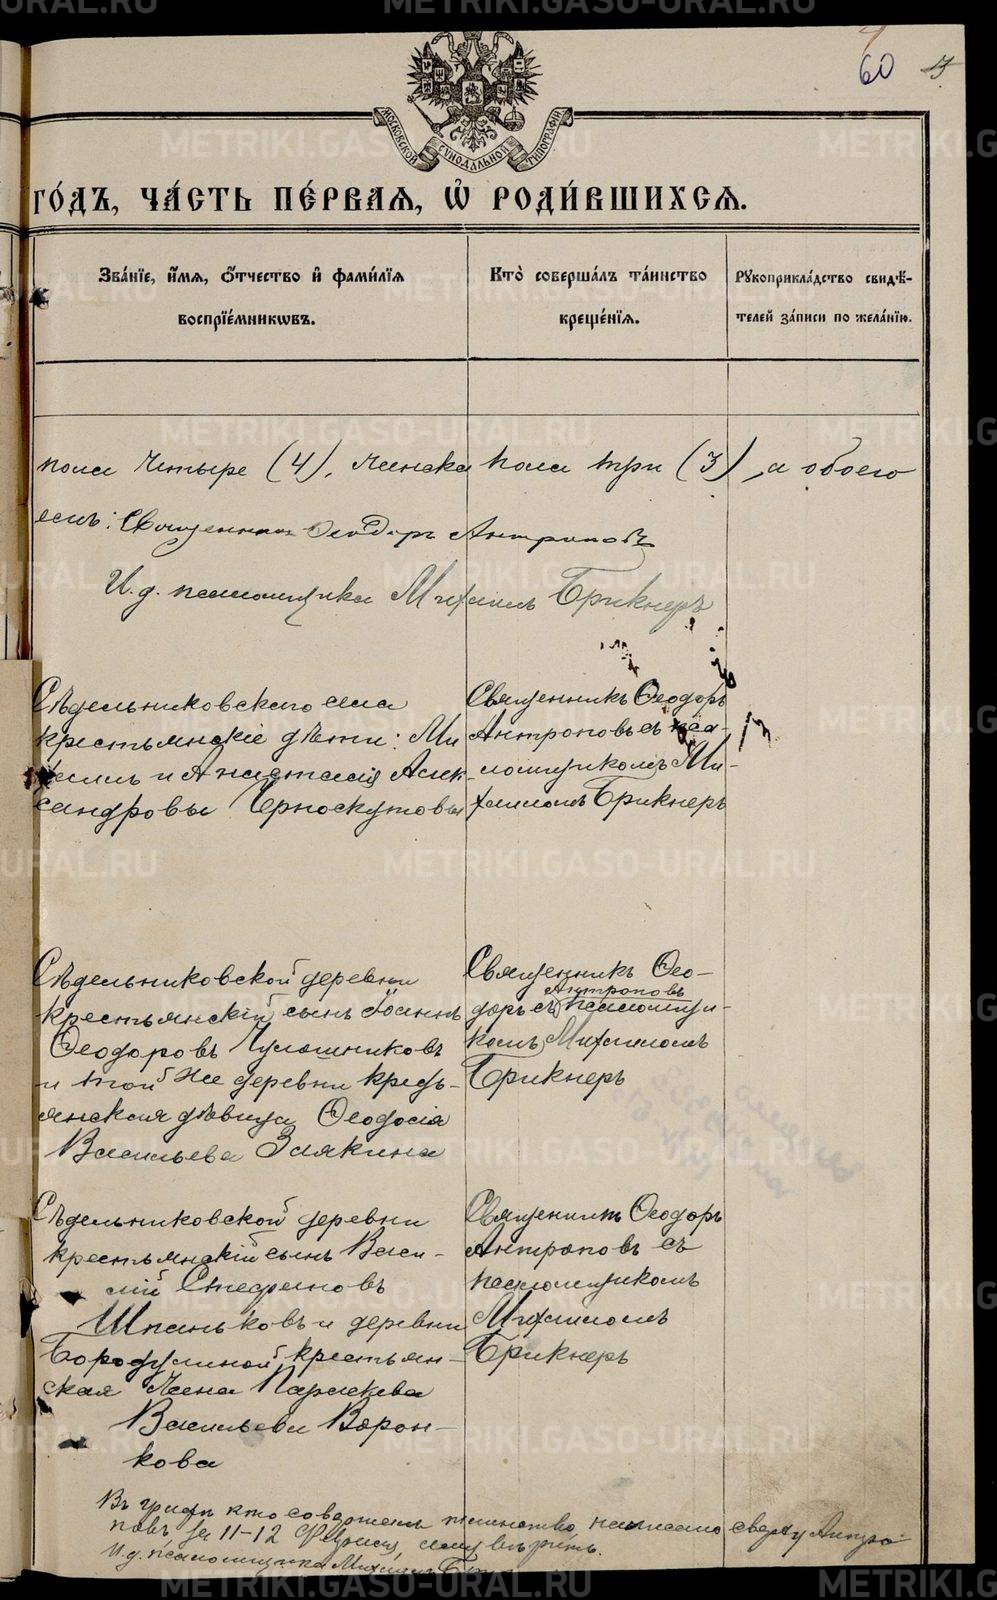 METRIKI.GASO-URAL.RU
60
МОСКОВСКОЙ СѴНОДАЛЬНОЙ ТИПОГРАФІИ
ГО́ДЪ, ЧА́СТЬ ПЕ́РВАѦ, Ѡ҆ РОДИ́ВШИХСѦ.
Зва́нїе, и҆́мѧ, ѻ҆́тчество и҆ фами́лїѧ
воспрїе́мникѡвъ.
Кто̀ соверша́лъ та́инство
креще́нїѧ.
Рꙋкоприкла́дство свидѣ́-
телей за́писи по жела́нїю.
пола четыре (4), женска пола три (3), а обоего
семь: Священникъ Ѳеодоръ Антроповъ
И. д. псаломщика Михаилъ Брикнеръ
Сѣдельниковскаго села
крестьянскіе дѣти: Ми-
хаилъ и Анастасія Алек-
сандровы Черноскутовы
Священникъ Ѳеодоръ
Антроповъ съ пса-
ломщикомъ Ми-
хаиломъ Брикнеръ
Сѣдельниковской деревни
крестьянскій сынъ Іоаннъ
Ѳеодоровъ Чулошниковъ
и той же деревни кресть-
янская дѣвица Ѳеодосія
Васильева Заякина
Священникъ Ѳео-
Антроповъ
доръ съ псаломщи-
комъ Михаиломъ
Брикнеръ
Сѣдельниковской деревни
крестьянскій сынъ Васи-
лій Стефановъ
Шпаньковъ и деревни
Бородулиной крестьян-
ская жена Параскева
Васильева Ворон-
кова
Священникъ Ѳеодоръ
Антроповъ съ
псаломщикомъ
Михаиломъ
Брикнеръ
Въ графѣ кто совершалъ таинство написано сверху Антро-
повъ за 11-12 Февраля, чему вѣрить.
И. д. псаломщика Михаилъ